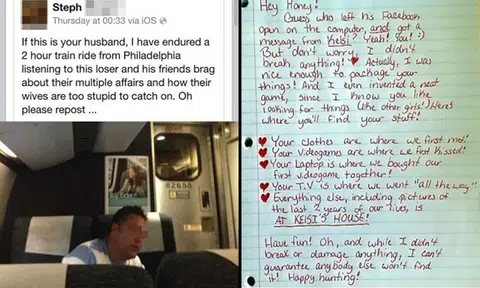 Steph
Thursday at 00:33 via iOS
If this is your husband, I have endured a
2 hour train ride from Philadelphia
listening to this loser and his friends brag
about their multiple affairs and how their
wives are too stupid to catch on. Oh
please repost ...
82658
Hey Honey!
Guess who left his Facebook
open on the computer, and got a
message from Keisi? Yeah! You! :)
But don't worry, I didn't
break anything! Actually, I was
nice enough to package your
things! And I even invented a neat
game, since I know you like
looking for things (like other girls!) Here's
where you'll find your stuff!
Your clothes are where we first met!
Your videogames are where we first kissed!
Your Laptop is where we bought our
first videogame together!
Your T.V is where we went "all the way"
Everything else, including pictures of
the last 2 years of our lives, is
AT KEISI'S HOUSE!
Have fun! Oh, and while I didn't
break or damage anything, I can't
guarantee anybody else won't find
it! Happy hunting!